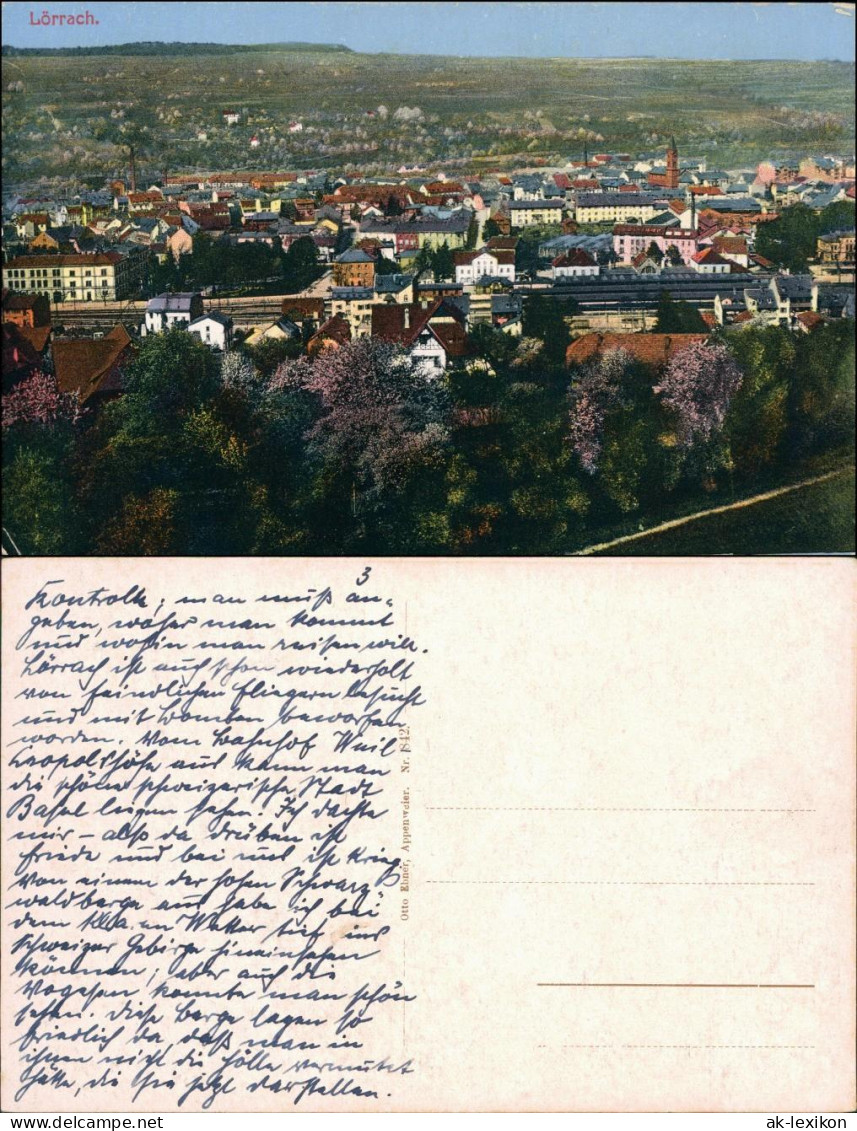 Lörrach.
3
Kontrolle; man muß an=
geben, woher man kommt
und wohin man reisen will.
Lörrach ist auch schon wiederholt
von feindlichen Fliegern besucht
und mit Bomben beworfen
worden. Vom Bahnhof Weil
Leopolshöhe aus kann man
die schöne schweizerische Stadt
Basel liegen sehen. Ich dachte
mir – also da drüben ist
Friede und bei uns ist Krieg
Von einem der hohen Schwarz=
waldberge aus habe ich bei
dem klaren Wetter tief ins
Schweizer Gebirge hineinsehen
können; aber auch die
Vogesen konnte man schön
sehen. Diese Berge lagen so
friedlich da, daß man in
ihnen nicht die Hölle vermutet
hätte, die sie jetzt darstellen.
Otto Ebner, Appenweier. Nr. 842.
www.ansichtskarten-lexikon.de
ak-lexikon